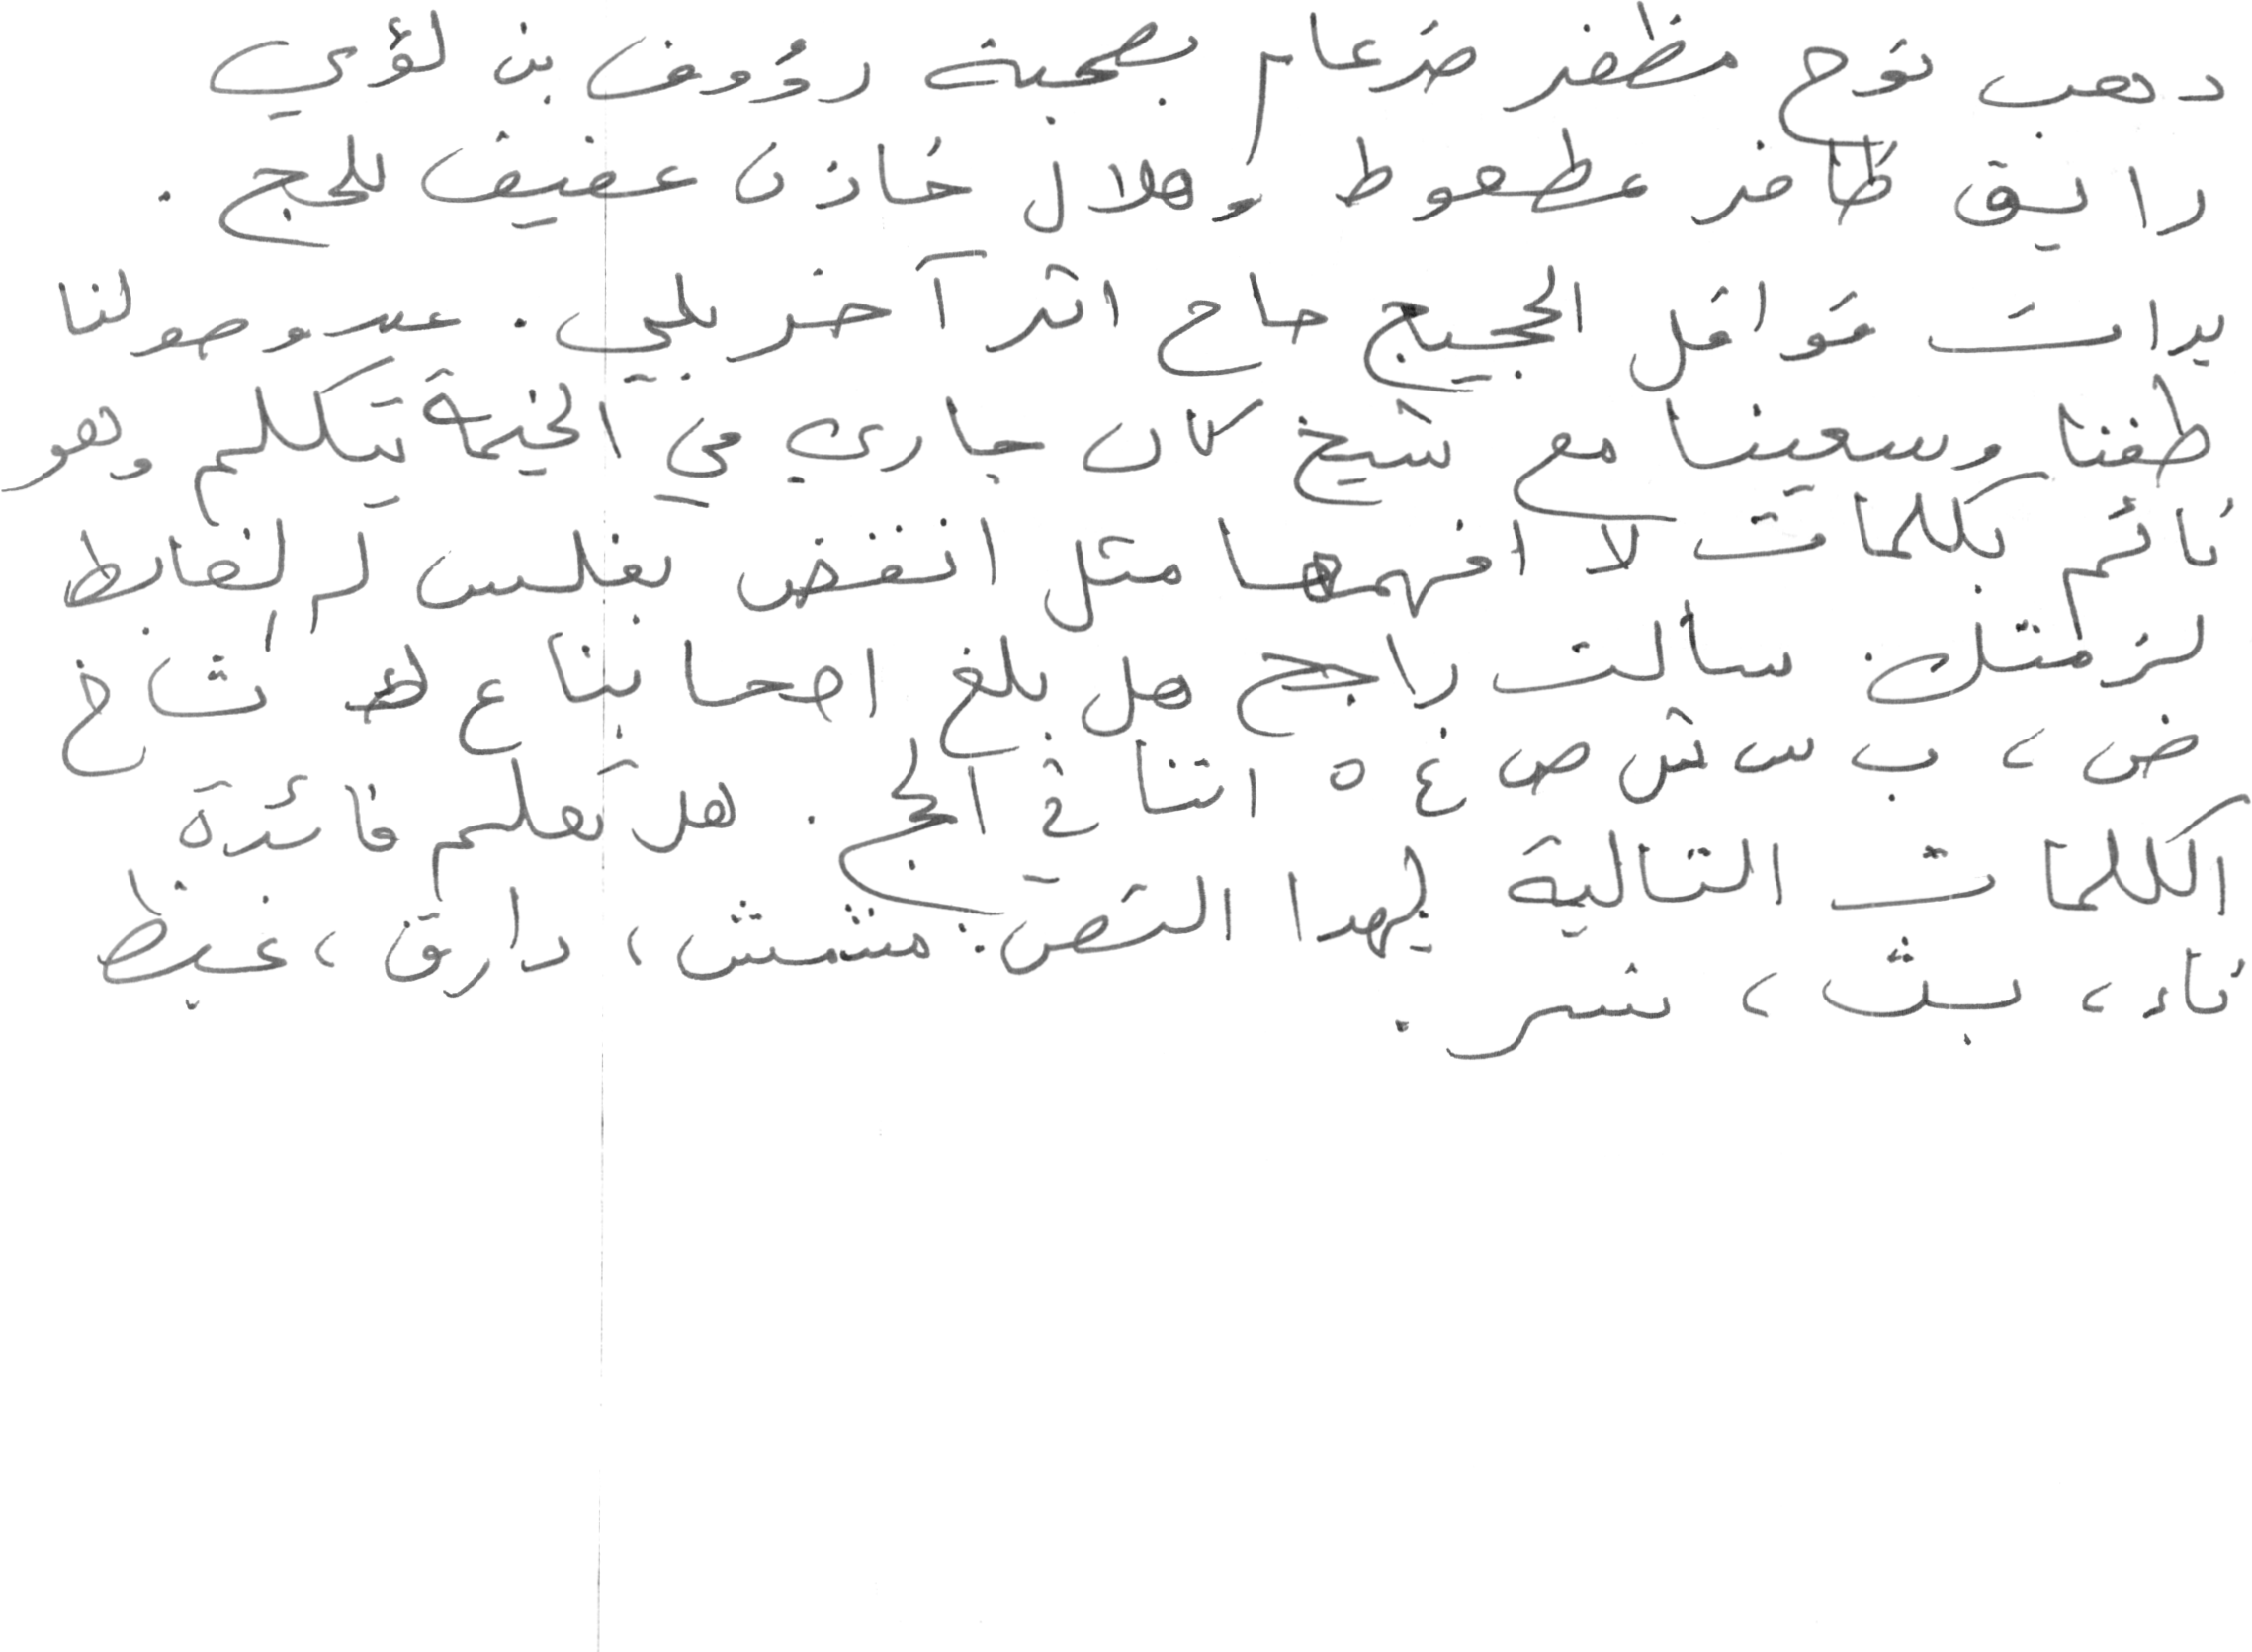 ذهب نوح مظفر ضرغام بصحبة رؤوف بن لؤي
رايق ظافر عطعوط وهلال خازن عفيف للحج .
بدات قوافل الحجيج حاج اثر آخر بلبي . عند وصولنا
طفنا وسعينا مع شيخ كان جاري في الخيمة يتكلم وهو
نائم بكلمات لا افهمها مثل انقض بغلس
لزمتك . سالت راجح هل بلغ اصحابنا ع ظ ث ا خ
ض ، ب س ش ص غ ه اتنا في الحج . هل تعلم فائدة
الكلمات التالية لهذا النص : مشمش ، دارق ، غيظ
ناء ، بث ، شر .